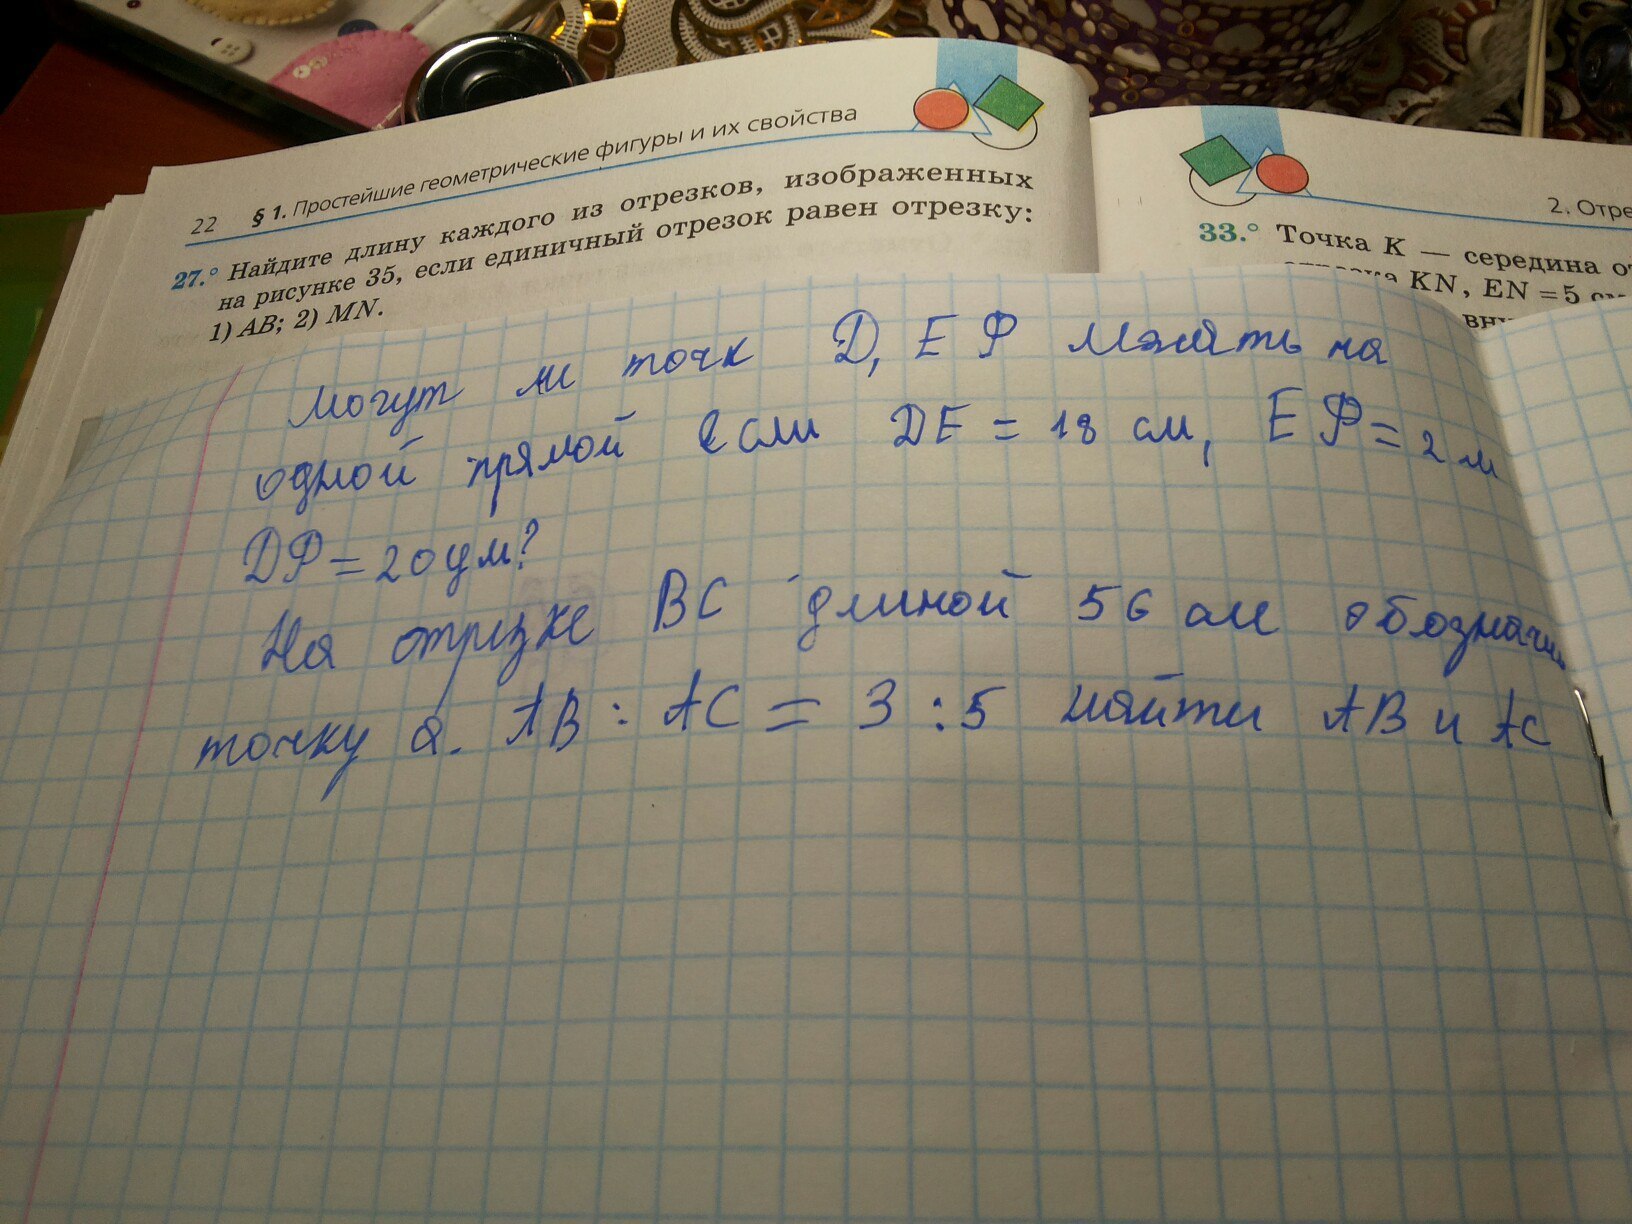 22 § 1. Простейшие геометрические фигуры и их свойства
27.° Найдите длину каждого из отрезков, изображенных
на рисунке 35, если единичный отрезок равен отрезку:
1) AB; 2) MN.
2. Отре
33.° Точка K — середина от
отрезка KN, EN = 5 см
вну
Могут ли точк D, E P лежать на
одной прямой если DE = 18 см, EP = 2 м
DP = 20 дм?
На отрезке BC длиной 56 см обозначили
точку а. AB : AC = 3 : 5 найти AB и AC